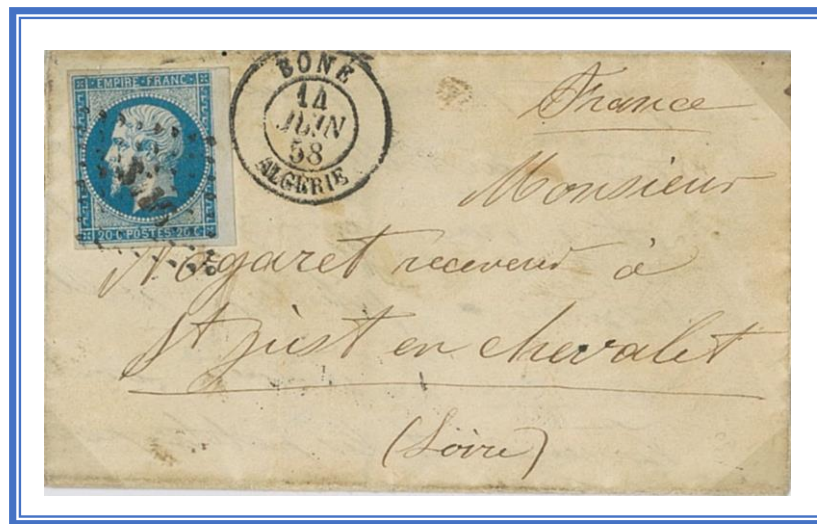 EMPIRE FRANC
20 C POSTES 20 C
BONE
14
JUIN
58
ALGERIE
France
Monsieur
Nogaret receveur à
St just en chevalet
(Loire)